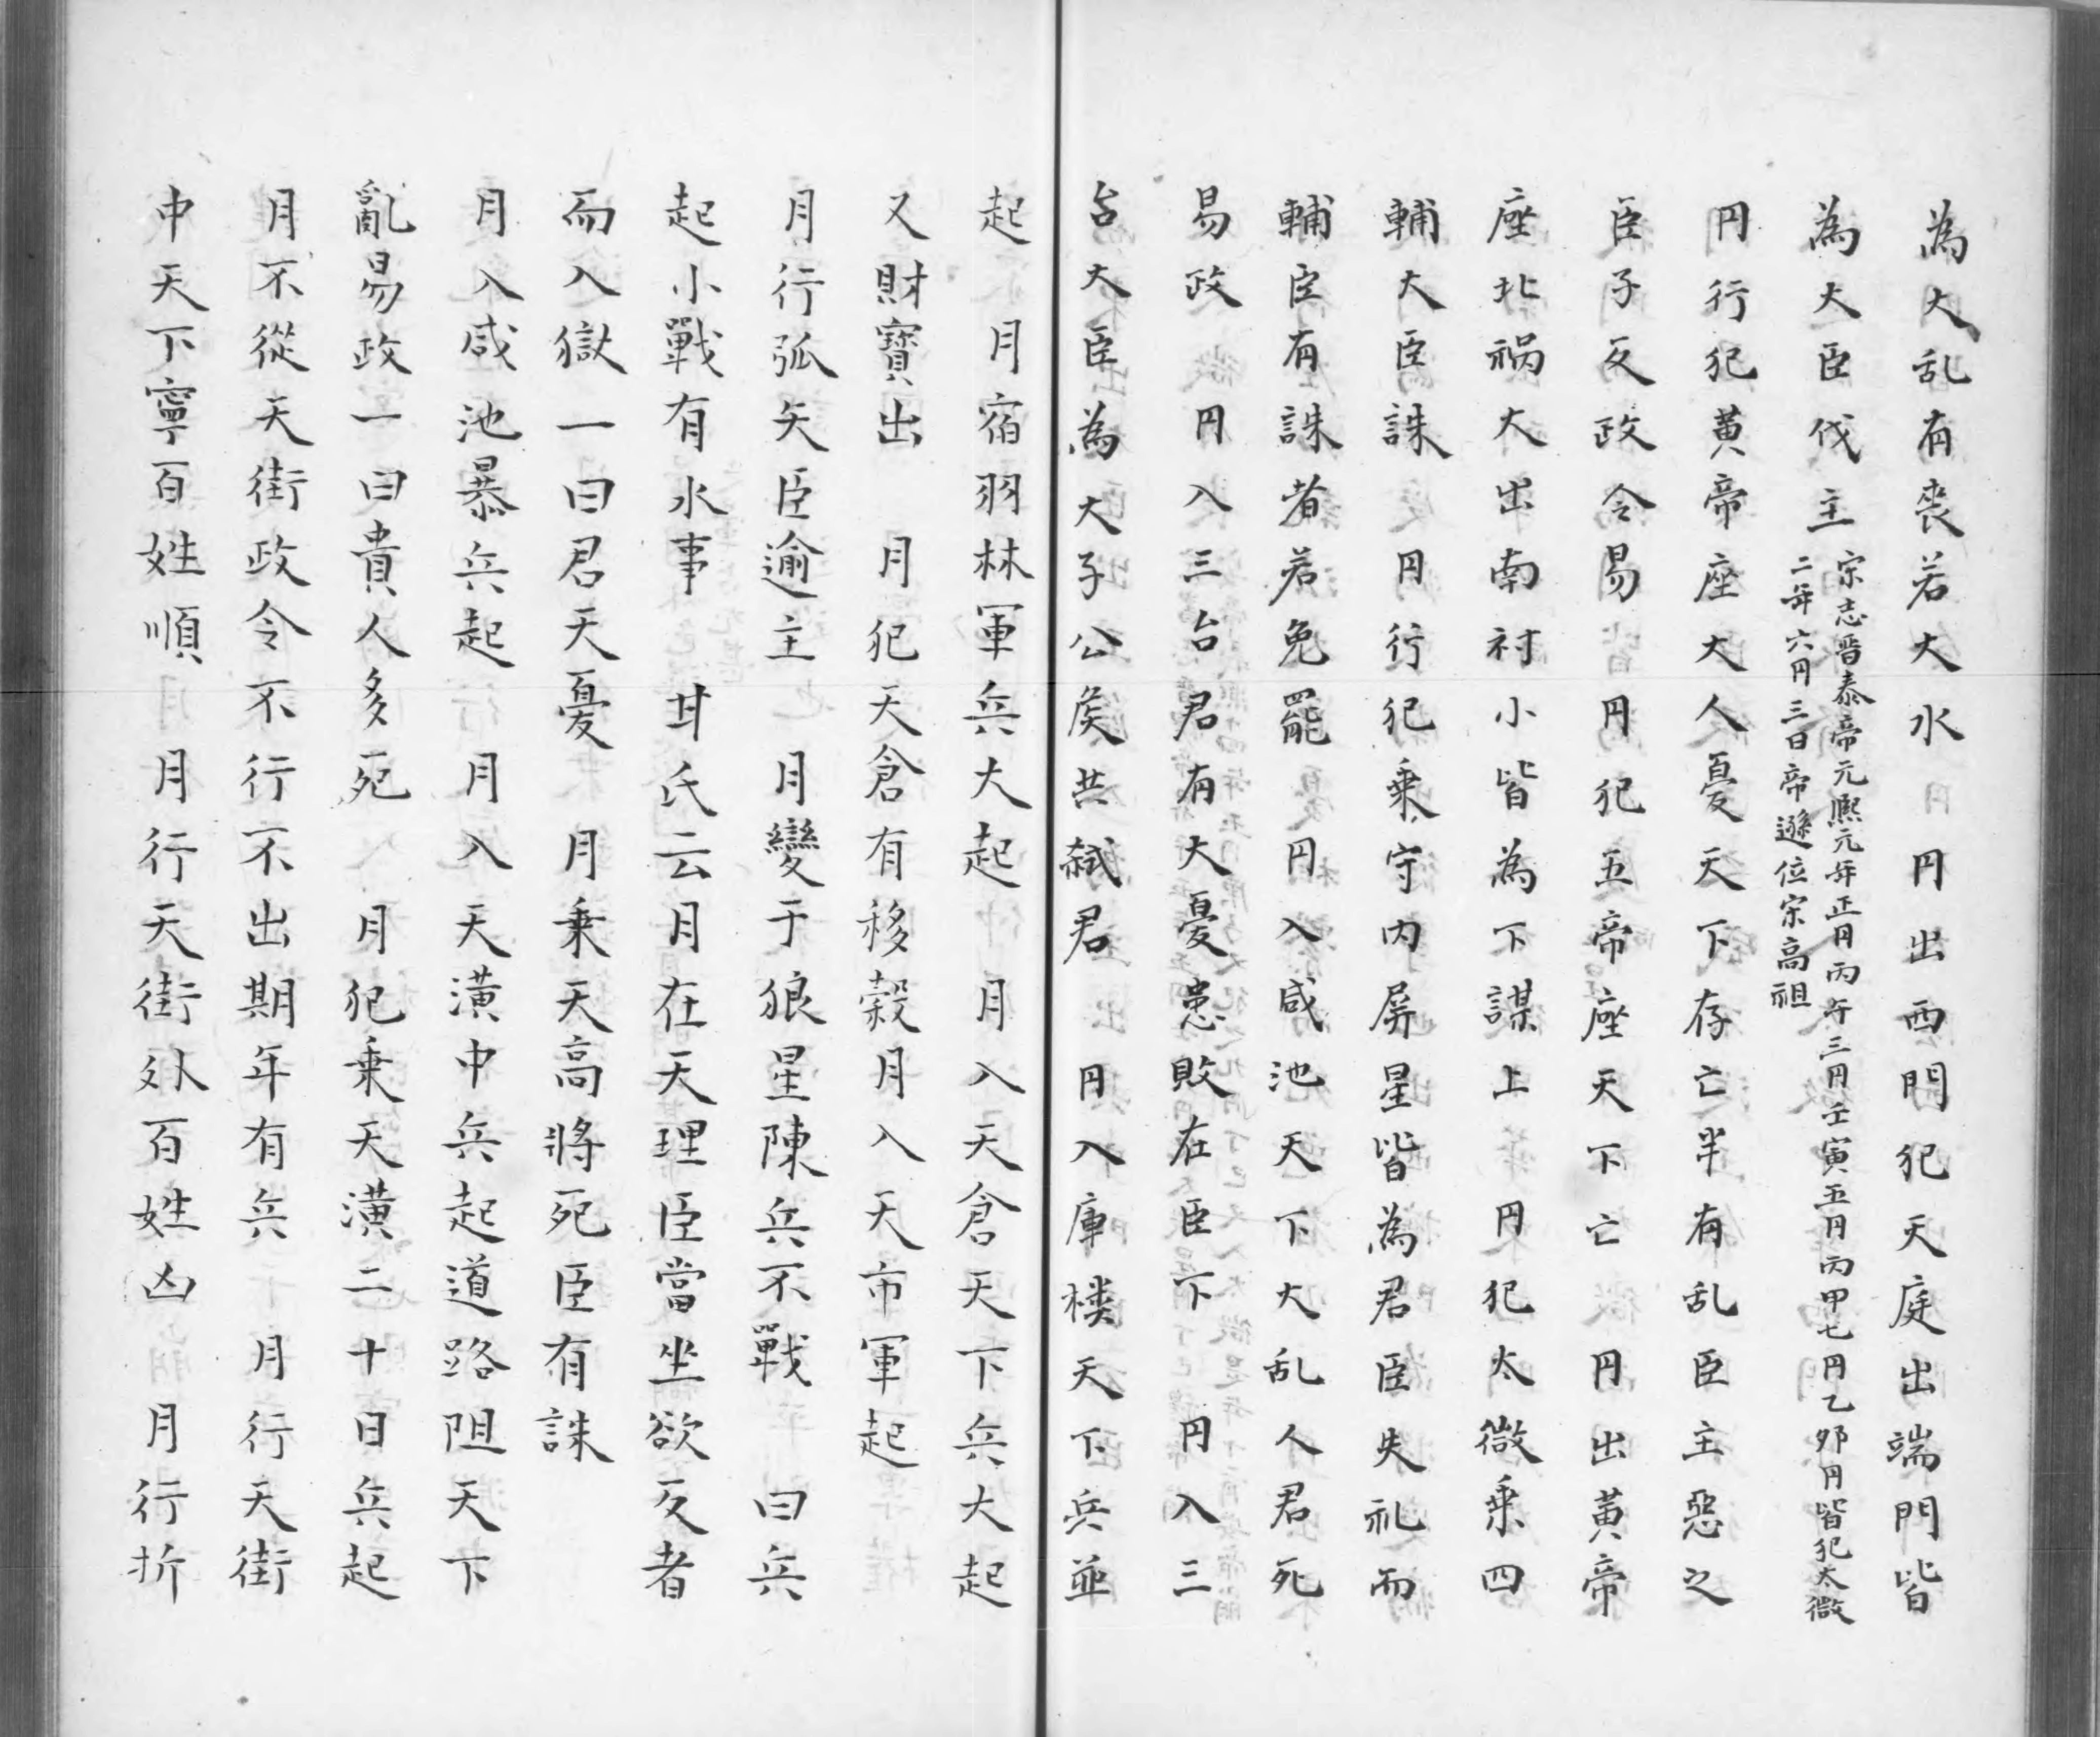 為大乱有喪若大水　円出西門犯天庭出端門皆
為大臣伐主
宗志晋泰帝元熈元年正円丙午三円壬寅五円丙甲七円乙夘円皆犯太微
二年六円三日帝遜位宗高祖
円行犯黄帝座大人憂天下存亡半有乱臣主惡之
臣子反政令易　円犯五帝座天下亡　円出黄帝
座北祸大出南衬小皆為下謀上　円犯太微乗四
輔大臣誅　円行犯乗守内屏星皆為君臣失礼而
輔臣有誅者若免罷　円入咸池天下大乱人君死
易政　円入三台君有大憂患敗在臣下　円入三
台大臣為大子公矦共弑君　円入庫楼天下兵並
起　月宿羽林軍兵大起　月入天倉天下兵大起
又財寶出　月犯天倉有移糓月入天市軍起
月行弧矢臣逾主　月變于狼星陳兵不戰　曰兵
起小戰有水事　甘氏云月在天理臣當坐欲反者
而入獄一曰君天憂　月乗天高將死臣有誅
月入咸池暴兵起　月入天潢中兵起道路阻天下
亂易政一曰貴人多死　月犯乗天潢二十日兵起
月不從天街政令不行不出期年有兵　月行天街
中天下寧百姓順　月行天街外百姓凶　月行折